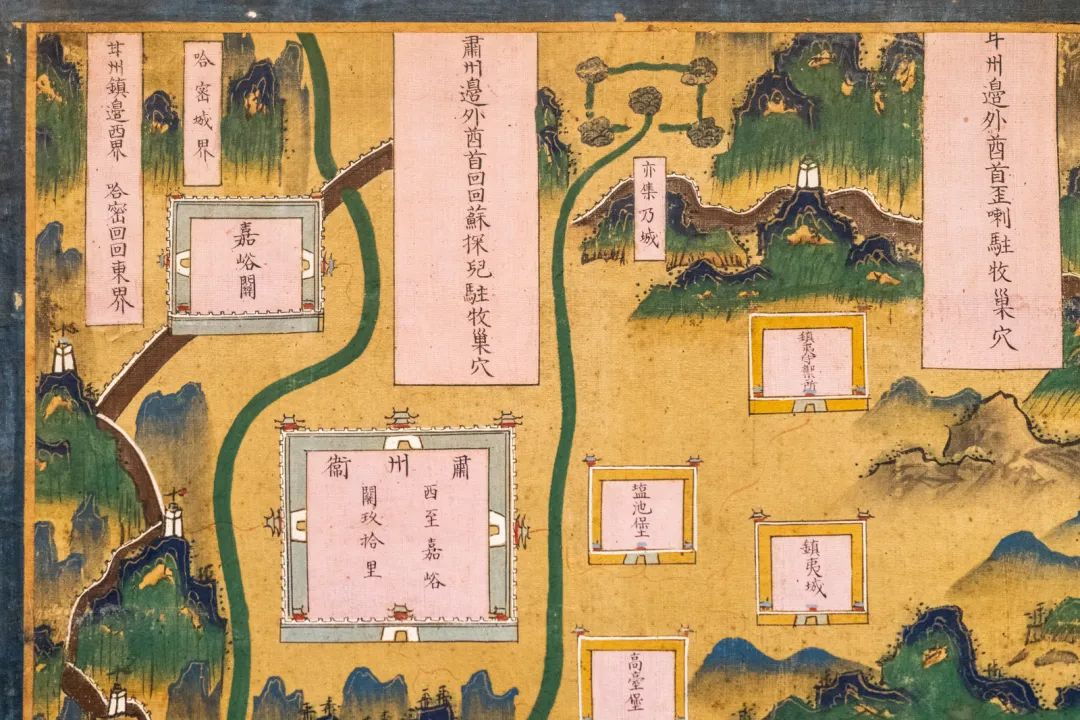 甘州鎮邊西界 哈密回回東界
哈密城界
肅州邊外酋首回回蘇探兒駐牧巢穴
亦集乃城
甘州邊外酋首歪喇駐牧巢穴
嘉峪關
鎮夷守禦所
肅州衛
西至嘉峪
關玖拾里
塩池堡
鎮夷城
高臺堡